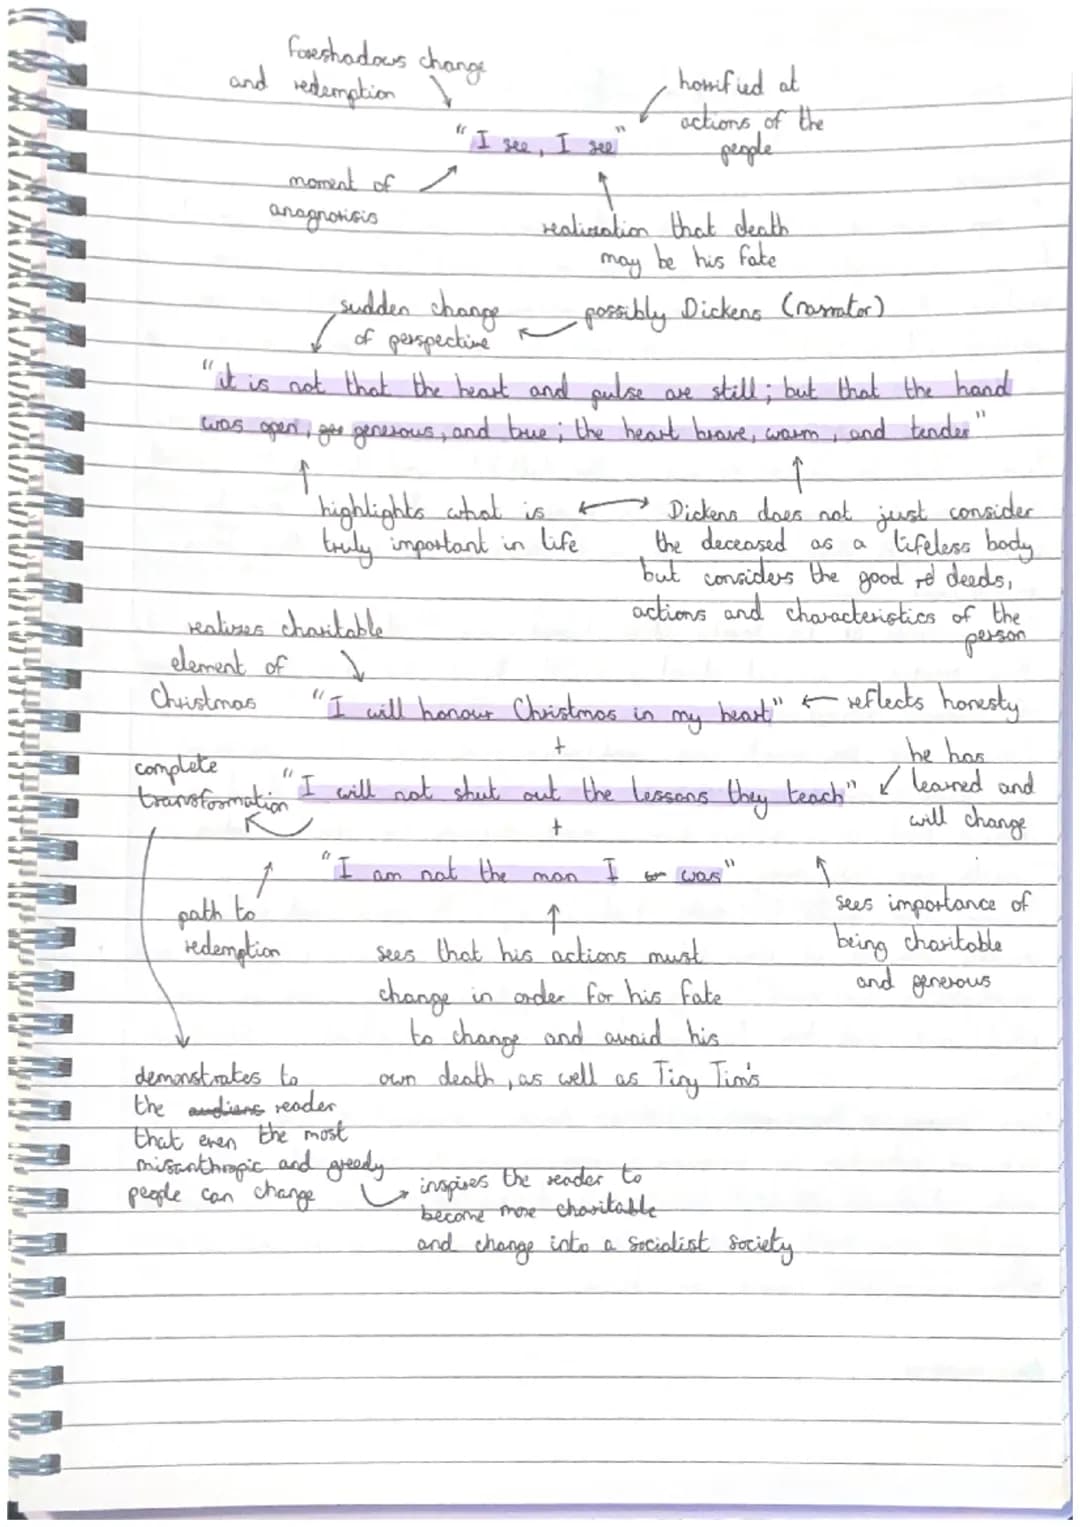 foreshadows change
and redemption
horrified at
actions of the
people
"I see, I see"
moment of
anagnorisis
realization that death
may be his fate
sudden change
of perspective
possibly Dickens (narrator)
"it is not that the heart and pulse are still; but that the hand
was open, generous, and true; the heart brave, warm, and tender"
highlights what is
truly important in life
Dickens does not just consider
the deceased as a lifeless body
but considers the good deeds,
actions and characteristics of the
person
realizes charitable
element of
Christmas
"I will honour Christmas in my heart"
reflects honesty
+
complete
transformation
"I will not shut out the lessons they teach"
he has
learned and
will change
+
"I am not the man I was"
path to
redemption
sees that his actions must
change in order for his fate
to change and avoid his
own death, as well as Tiny Tim's
sees importance of
being charitable
and generous
demonstrates to
the reader
that even the most
misanthropic and greedy
people can change
inspires the reader to
become more charitable
and change into a socialist society